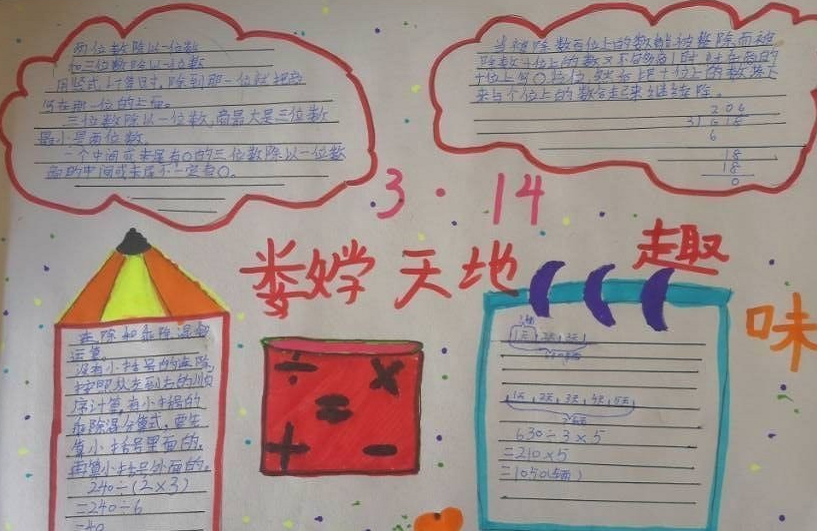 两位数除以一位数
和三位数除以一位数
用竖式计算时，除到哪一位就把商
写在那一位的上面。
三位数除以一位数，商最大是三位数
最小是两位数。
一个中间或末尾有0的三位数除以一位数
商的中间或末尾不一定有0。
当被除数百位上的数能被整除，而被
除数十位上的数又不够商1时，
十位上写0占位，然后把十位上的数落下
来与个位上的数合起来继续除。
206
3 618
6
18
18
0
3·14
天地
趣
味
连除和乘除混合
运算
没有小括号的连除，
按照从左到右的顺
序计算，有小括号的
乘除混合算式，要先
算小括号里面的，
再算小括号外面的。
240÷(2×3)
=240÷6
=40
÷ ×
=
+ -
1天, 2天, 3天,
1天, 2天, 3天, 4天, 5天
630÷3×5
=210×5
=1050